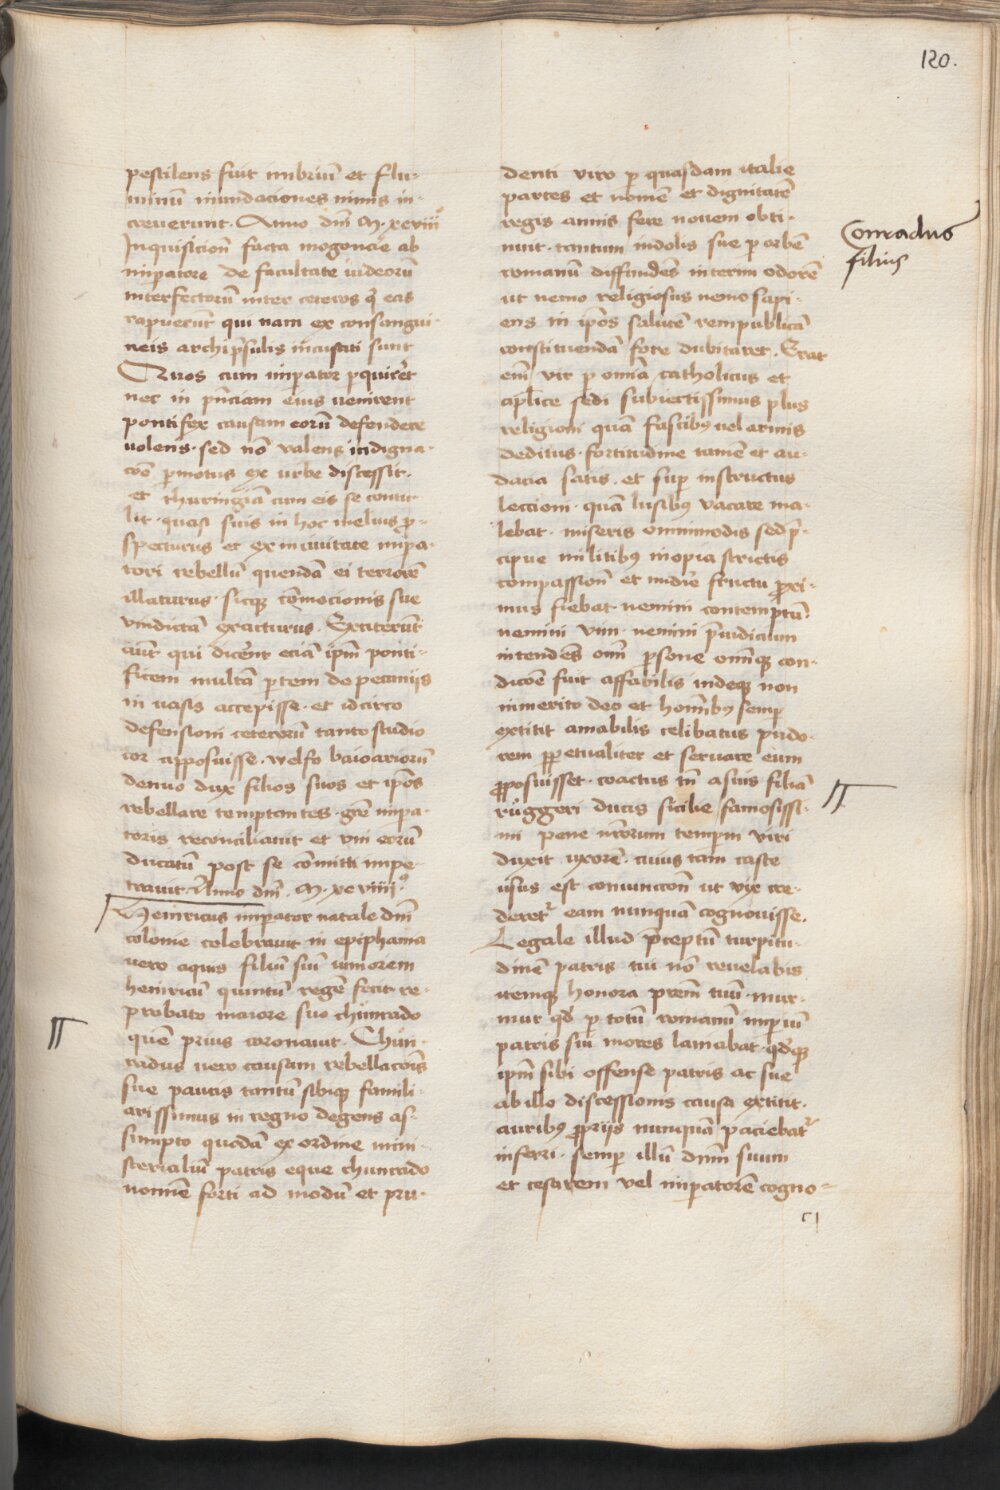 120.
pestilens fuit imbriū et flu-
minū inundaciones nimis in-
creuerunt. Anno dm̄ M. xcviij
Inquisicion̄ facta mogoncie ab
imꝑatore de facultate iudeorū
interfectorū inter ceteros q̄ eas
rapuerūt qui nam ex consangui-
neis archip̄sulis incusati sunt
Quos cum imꝑator ꝑquirer̄t
nec in p̄nciam eius venirent
pontifex causam eorū defendere
uolens. sed nō valens indigna-
cōe ꝑmotus ex urbe discessit.
et thuringiā cum eis se contu-
lit. quasi suis in hoc melius ꝓ-
specturus et ex inciuitate imꝑa-
tori rebellū quendā ei terrorē
illaturus. sicqꝫ cōmocionis sue
vindictā exacturus. Extiterūt
aūt qui dicer̄nt eciā ipm̄ ponti-
ficem multā ꝑtem de pecuniis
in uasis accepisse. et idcirco
defensioni ceterorū tanto studio
cor apposuisse. welfo baioariorū
denuo dux filios suos et ip̄os
rebellare temptantes. grē imꝑa-
toris reconciliauit et vni eorū
ducatū post se cōmitti impe-
trauit. Anno dm̄. M. xcviiij.
Heinricus imꝑator natale dm̄
colonie celebrauit in epiphania
vero aquis filiū suū iuniorem
heinricū quintū regē fecit re-
probato maiore suo chūnrado
quē prius coronauit. Chūn-
radus vero causam rebellacōis
sue paucis tantū sibiqꝫ famili-
arissimus in regno degens as-
sumpto quodā ex ordine mini-
sterialiū patris eque chunrado
nomīe forti ad modū et pru-
denti viro ꝑ quasdam italie
partes et nomē et dignitatē
regis annis fere nouem obti-
nuit. tantum indolis sue ꝑ orbē
romanū diffundēs interim odorē
ut nemo religiosus nemo sapi-
ens in ip̄os salutē rempublicā
constituendā fore dubitaret. Erat
em̄ vir ꝑ omnīa catholicus et
aplice sedi subiectissimus plus
religioni quā fascibꝫ vel armis
deditus. fortitudine tamē et au-
dacia satis. et suꝑ instructus
leccioni. quā lusibꝫ vacare ma-
lebat. miseris omnimodis sed p̄-
cipue militibꝫ inopia strictis
compassion̄ et fructu ꝓxi-
mus fiebat. nemini contemptū.
nemini vim. nemini p̄iudicium
intendēs om̄i ꝑsone om̄iqꝫ con-
dicōe fuit affabilis indeqꝫ non
immerito deo et homībꝫ semꝑ
extitit amabilis celibatus pudo-
rem ꝑpetualiter et seruare eum
ꝓposuisset. coactus tn̄ a suis filiā
růggeri ducis sicilie famosissi-
mi pene nr̄orum tempm viri
duxit uxorē. cuius tam caste
usus est coniunccōn ut vix cre-
deret᷑ eam nunquā cognouisse.
Legale illud p̄ceptū turpitu-
dinē patris tui nō reuelabis
itemqꝫ honora prēm tuū. mur-
mur qd̄ ꝑ totū romanū imꝑiū
patris sui mores lamabat. qd̄qꝫ
ipm̄ sibi offense patris ac sue
ab illo discessionis causa extitit.
auribꝫ ꝓpriis nunquā paciebat᷑
inferri. semꝑ illū dnm̄ suum
et cesarem vel imꝑatorē cogno-
Conradus
filius